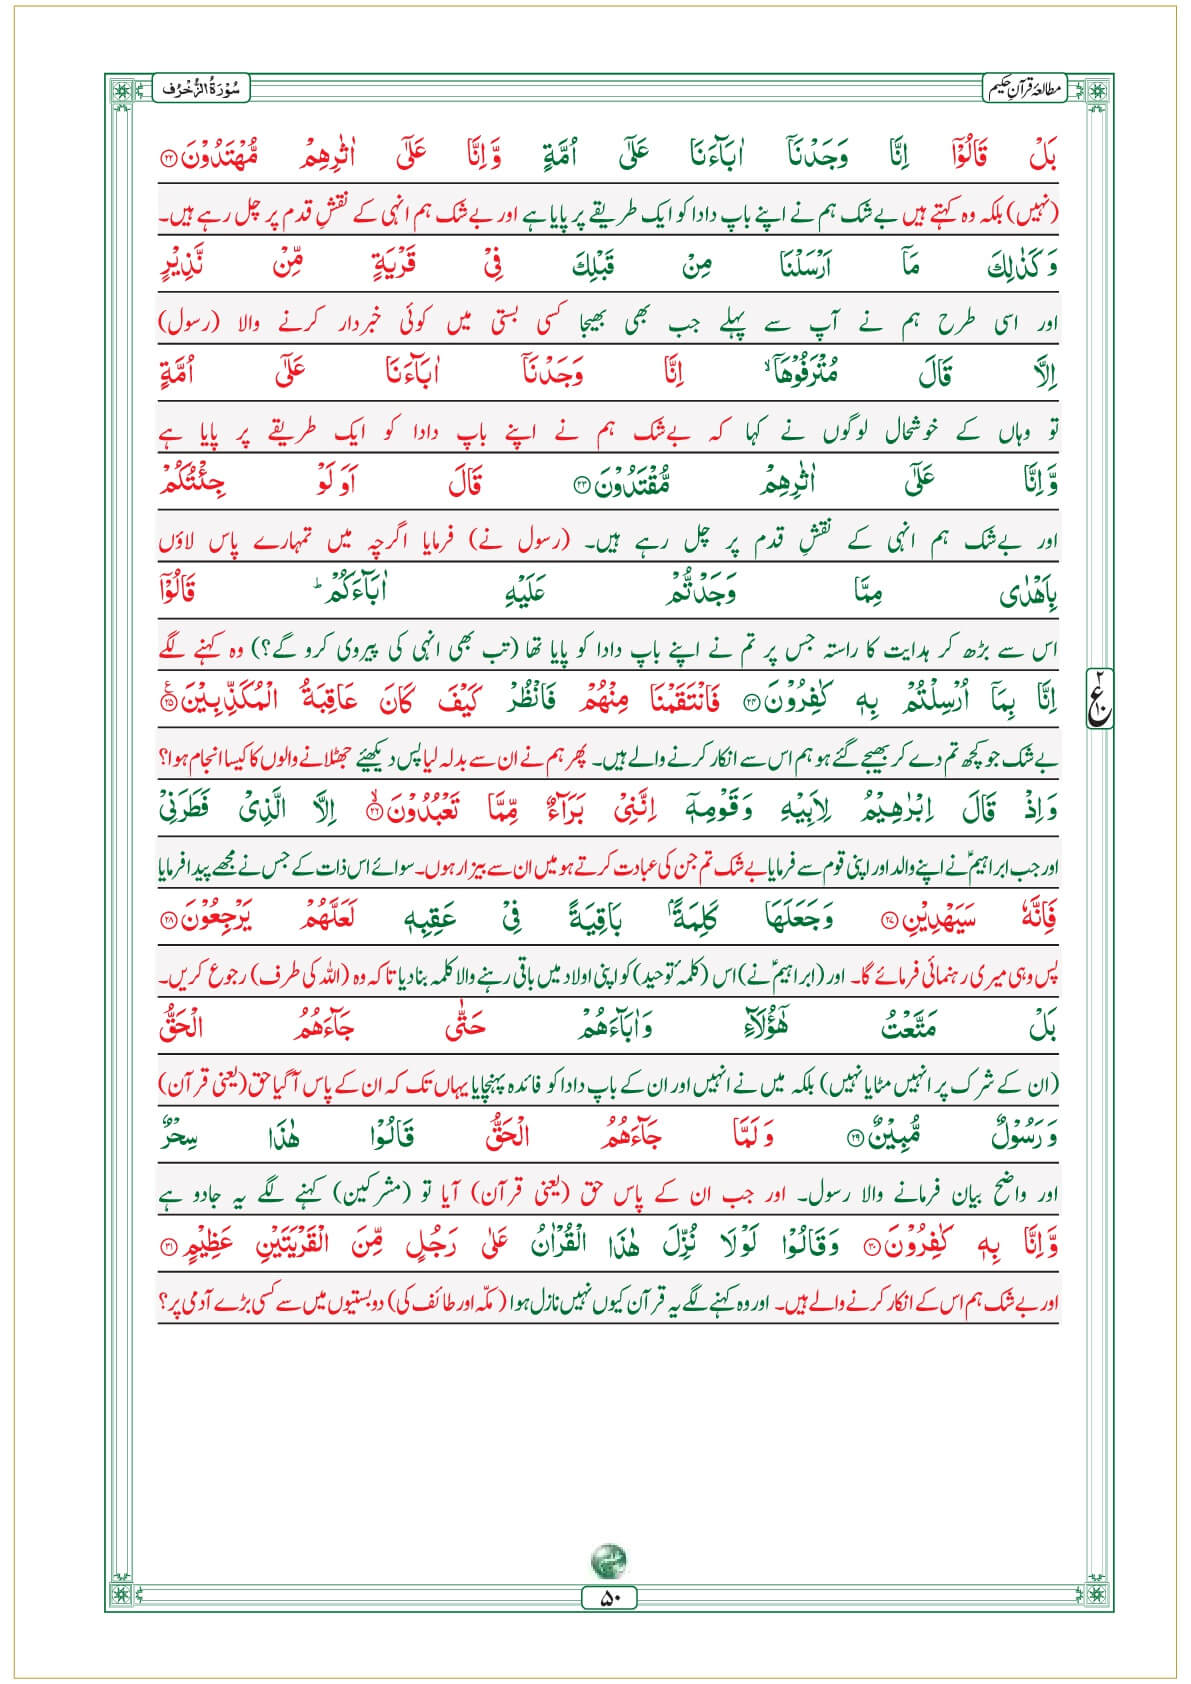 مطالعۂ قرآنِ حکیم
سُوْرَةُ الزُّخْرُف
بَلْ قَالُوْۤا اِنَّا وَجَدْنَاۤ اٰبَآءَنَا عَلٰۤى اُمَّةٍ وَّ اِنَّا عَلٰۤى اٰثٰرِهِمْ مُّهْتَدُوْنَ ۲۲
(نہیں) بلکہ وہ کہتے ہیں بے شک ہم نے اپنے باپ دادا کو ایک طریقے پر پایا ہے اور بے شک ہم انہی کے نقشِ قدم پر چل رہے ہیں۔
وَ كَذٰلِكَ مَاۤ اَرْسَلْنَا مِنْ قَبْلِكَ فِیْ قَرْیَةٍ مِّنْ نَّذِیْرٍ
اور اسی طرح ہم نے آپ سے پہلے جب بھی بھیجا کسی بستی میں کوئی خبردار کرنے والا (رسول)
اِلَّا قَالَ مُتْرَفُوْهَاۤ ۙ اِنَّا وَجَدْنَاۤ اٰبَآءَنَا عَلٰۤى اُمَّةٍ
تو وہاں کے خوشحال لوگوں نے کہا کہ بے شک ہم نے اپنے باپ دادا کو ایک طریقے پر پایا ہے
وَّ اِنَّا عَلٰۤى اٰثٰرِهِمْ مُّقْتَدُوْنَ ۲۳ قٰلَ اَوَ لَوْ جِئْتُكُمْ
اور بے شک ہم انہی کے نقشِ قدم پر چل رہے ہیں۔ (رسول نے) فرمایا اگرچہ میں تمہارے پاس لاؤں
بِاَهْدٰى مِمَّا وَجَدْتُّمْ عَلَیْهِ اٰبَآءَكُمْ ؕ قَالُوْۤا
اس سے بڑھ کر ہدایت کا راستہ جس پر تم نے اپنے باپ دادا کو پایا تھا (تب بھی انہی کی پیروی کرو گے؟) وہ کہنے لگے
اِنَّا بِمَاۤ اُرْسِلْتُمْ بِهٖ كٰفِرُوْنَ ۲۴ فَانْتَقَمْنَا مِنْهُمْ فَانْظُرْ كَیْفَ كَانَ عَاقِبَةُ الْمُكَذِّبِیْنَ ۲۵ ع
۲
ع
۱۰
بے شک جو کچھ تم دے کر بھیجے گئے ہو ہم اس سے انکار کرنے والے ہیں۔ پھر ہم نے ان سے بدلہ لیا پس دیکھئے جھٹلانے والوں کا کیسا انجام ہوا؟
وَ اِذْ قَالَ اِبْرٰهِیْمُ لِاَبِیْهِ وَ قَوْمِهٖۤ اِنَّنِیْ بَرَآءٌ مِّمَّا تَعْبُدُوْنَ ۲۶ ۙ اِلَّا الَّذِیْ فَطَرَنِیْ
اور جب ابراہیمؑ نے اپنے والد اور اپنی قوم سے فرمایا بے شک تم جن کی عبادت کرتے ہو میں ان سے بیزار ہوں۔ سوائے اس ذات کے جس نے مجھے پیدا فرمایا
فَاِنَّهٗ سَیَهْدِیْنِ ۲۷ وَ جَعَلَهَا كَلِمَةًۢ بَاقِیَةً فِیْ عَقِبِهٖ لَعَلَّهُمْ یَرْجِعُوْنَ ۲۸
پس وہی میری رہنمائی فرمائے گا۔ اور (ابراہیمؑ نے) اس (کلمۂ توحید) کو اپنی اولاد میں باقی رہنے والا کلمہ بنا دیا تاکہ وہ (اللہ کی طرف) رجوع کریں۔
بَلْ مَتَّعْتُ هٰۤؤُلَآءِ وَ اٰبَآءَهُمْ حَتّٰى جَآءَهُمُ الْحَقُّ
(ان کے شرک پر انہیں مٹایا نہیں) بلکہ میں نے انہیں اور ان کے باپ دادا کو فائدہ پہنچایا یہاں تک کہ ان کے پاس آگیا حق (یعنی قرآن)
وَ رَسُوْلٌ مُّبِیْنٌ ۲۹ وَ لَمَّا جَآءَهُمُ الْحَقُّ قَالُوْا هٰذَا سِحْرٌ
اور واضح بیان فرمانے والا رسول۔ اور جب ان کے پاس حق (یعنی قرآن) آیا تو (مشرکین) کہنے لگے یہ جادو ہے
وَّ اِنَّا بِهٖ كٰفِرُوْنَ ۳۰ وَ قَالُوْا لَوْ لَا نُزِّلَ هٰذَا الْقُرْاٰنُ عَلٰى رَجُلٍ مِّنَ الْقَرْیَتَیْنِ عَظِیْمٍ ۳۱
اور بے شک ہم اس کے انکار کرنے والے ہیں۔ اور وہ کہنے لگے یہ قرآن کیوں نہیں نازل ہوا (مکّہ اور طائف کی) دو بستیوں میں سے کسی بڑے آدمی پر؟
۵۰